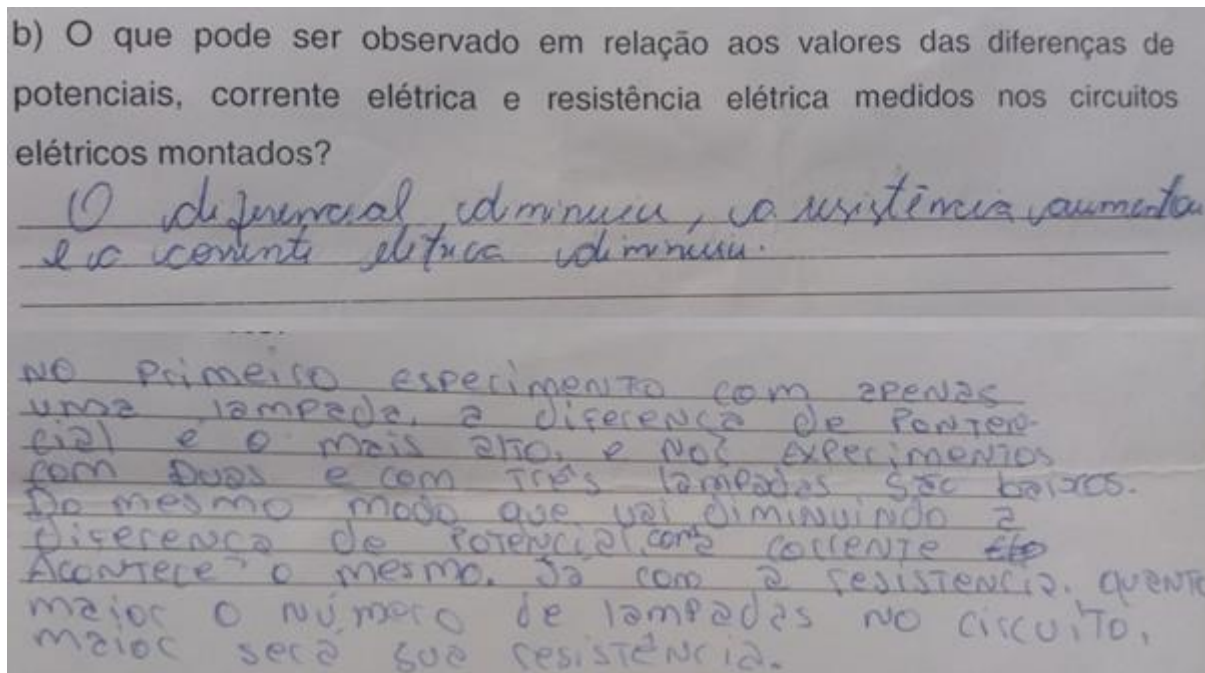 b) O que pode ser observado em relação aos valores das diferenças de
potenciais, corrente elétrica e resistência elétrica medidos nos circuitos
elétricos montados?
O diferencial diminuiu, a resistência aumentou
e a corrente eletrica diminuiu.
NO Primeiro esperimento com apenas
uma lampada, a diferença de Ponten-
cial e o mais alto, e nos experimentos
com Duas e com Três lampadas são baixos.
Do mesmo modo que vai diminuindo a
diferença de Potencial, com a corrente
Acontece o mesmo. Já com a resistencia, quanto
maior o número de lampadas no circuito,
maior será sua resistência.